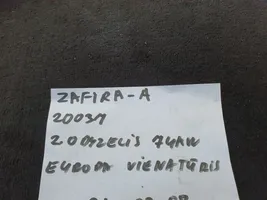 ZAFIRA-A
2003M
2.0DYZELIS 74KW
EUROPA VIENATŪRIS